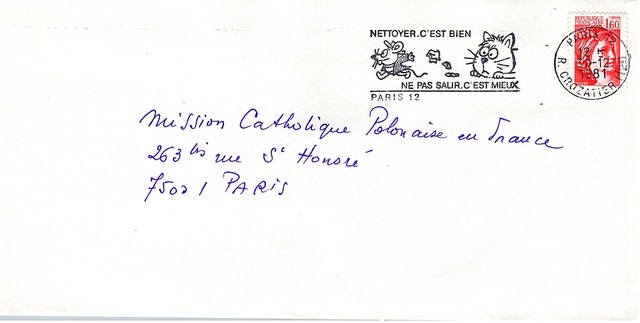 NETTOYER.C'EST BIEN
NE PAS SALIR.C'EST MIEUX
PARIS 12
1,60
PARIS 12
12 H
30-12
1981
R. CROZATIER (12E)
Mission Catholique Polonaise en France
263 bis rue St Honoré
75001 PARIS